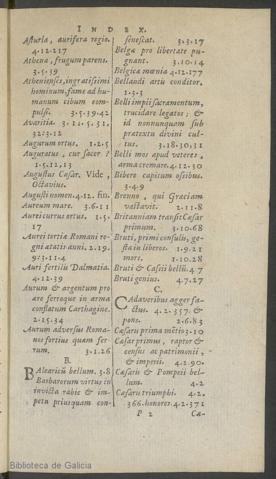 INDEX.
Asturia, aurifera regio.
4.12.217
Athena, frugum parens.
3.5.39
Athenienses, ingratissimi
hominum. fame ad hu-
manum cibum com-
pulsi. 3.5.39.42
Avaritia. 3.12.5.31.
32:3.12
Augurum ortus. 1.2.5
Auguratus, cur sacer?
1.5.12,13
Augustus Cæsar. Vide,
Octavius.
Augusti nomen. 4.12. fin.
Aureum mare. 3.6.11
Aurei currus ortus. 1.5.
17
Aurei tertia Romani re-
gni ætatis anni. 2.19.
9:3.11.4
Auri fertilis Dalmatia.
4.12.39
Aurum & argentum pro
ære ferroque in arma
conflatum Carthagine.
2.15.34
Aurum adversus Roma-
nos fortius quam fer-
rum. 3.1.26
B.
Balearicũ bellum. 3.8
Barbarorum virtus in
invicta rabie & im-
petu priusquam con-
senescat. 3.3.17
Belga pro libertate pu-
gnant. 3.10.14
Belgica mœnia 4.12.177
Bellandi artu conditor.
1.3.3
Belli impii sacramentum,
trucidare legatos; &
id nonnunquam sub
prætextu divini cul-
tus. 3.18.30,31
Belli mos apud veteres,
arma cremare. 4.12.30
Bibere capitum ossibus.
3.4.9
Brenno, qui Græciam
vastavit. 2.11.8
Britanniam transit Cæsar
primum. 3.10.68
Bruti, primi consulis, ge-
sta in liberos. 1.9.21
mors. 1.10.28
Bruti & Cassii bellũ. 4.7
Bruti genius. 4.7.27
C.
Cadaveribus agger fa-
ctus. 4.2.357. &
pons. 2.6.83
Cæsaris prima mẽtio 3.10
Cæsar primus, raptor &
census ac patrimonii,
& imperii. 4.2.90.
Cæsaris & Pompeii bel-
lum. 4.2
Cæsaris triumphi. 4.2.
366. honores. 4.2.371
P 2 Cæ-
Biblioteca de Galicia